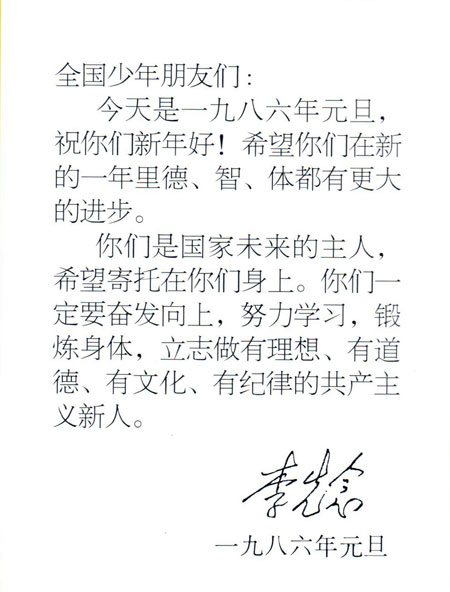 全国少年朋友们：
今天是一九八六年元旦，
祝你们新年好！希望你们在新
的一年里德、智、体都有更大
的进步。
你们是国家未来的主人，
希望寄托在你们身上。你们一
定要奋发向上，努力学习，锻
炼身体，立志做有理想、有道
德、有文化、有纪律的共产主
义新人。
李先念
一九八六年元旦